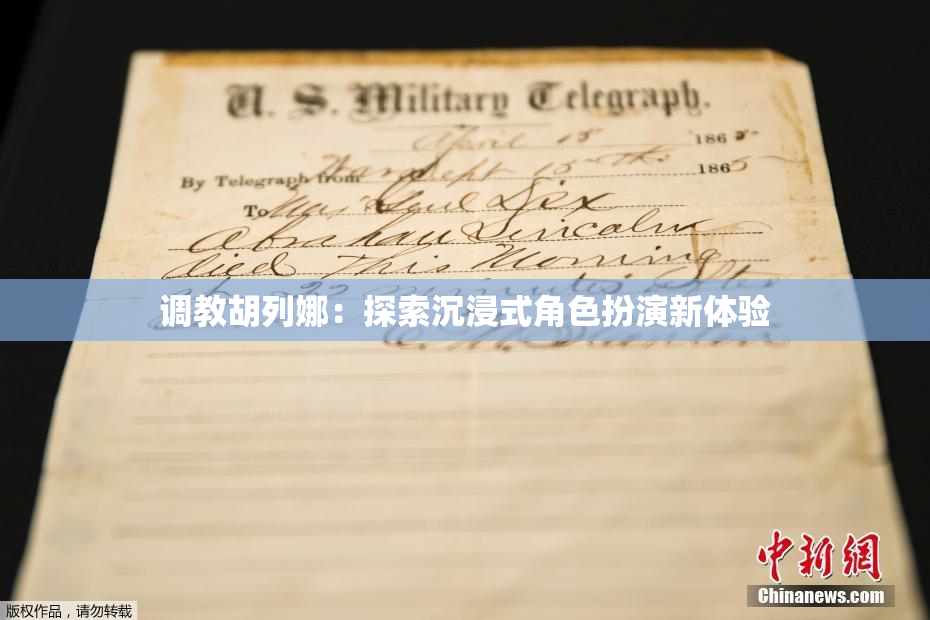 U. S. Military Telegraph.
April 15 1865
By Telegraph from War Dept 15th 1865
To Maj Genl Dix
Abraham Lincoln
died this Morning
at 22 minutes after
调教胡列娜：探索沉浸式角色扮演新体验
E. M. Stanton
中新网
Chinanews.com
版权作品，请勿转载